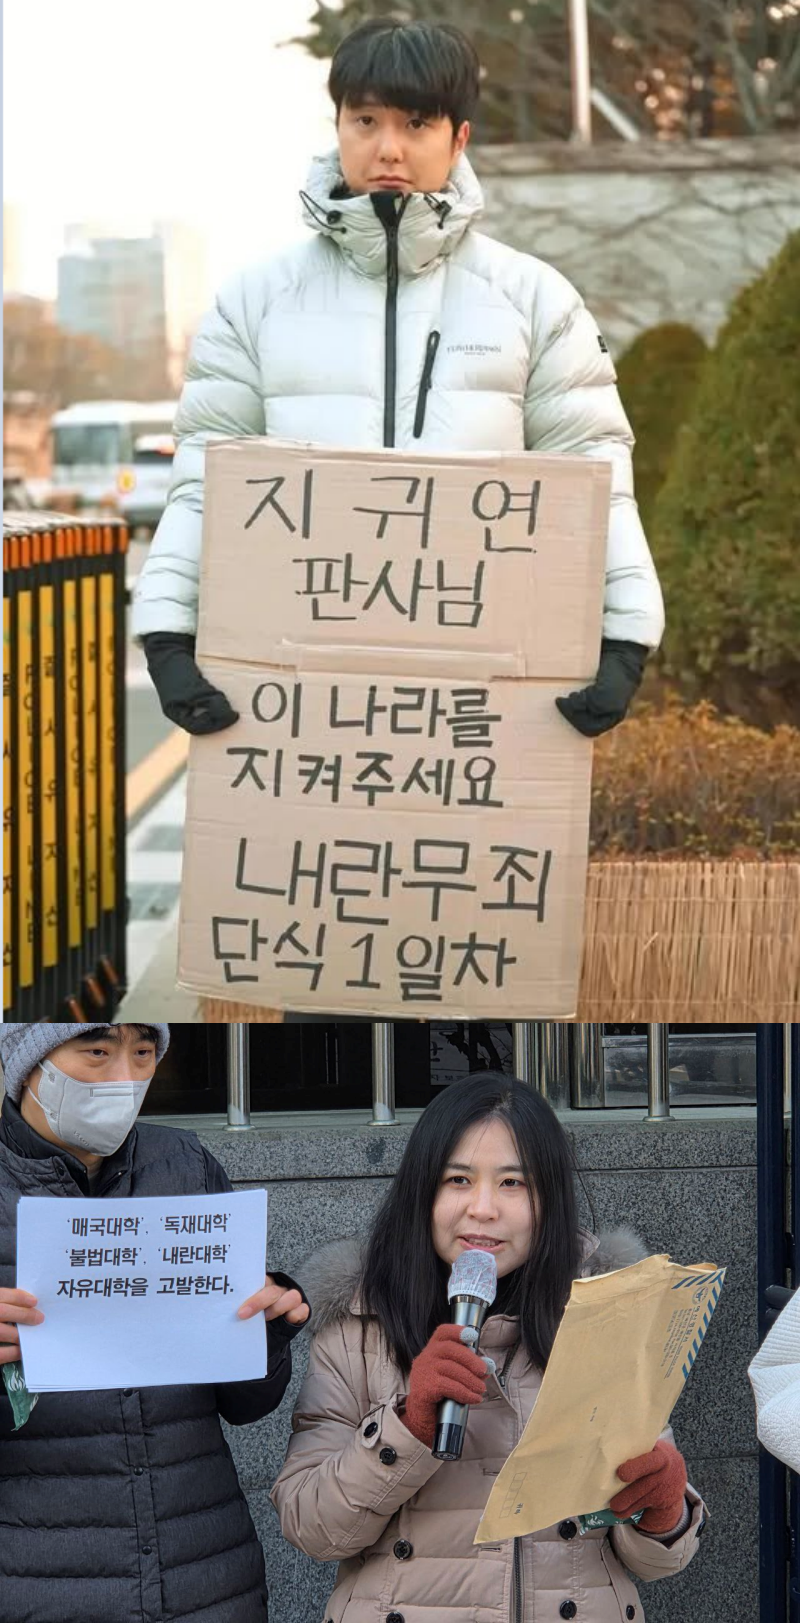 지귀연
판사님
이 나라를
지켜주세요
내란무죄
단식 1일차
'매국대학', '독재대학'
'불법대학', '내란대학'
자유대학을 고발한다.